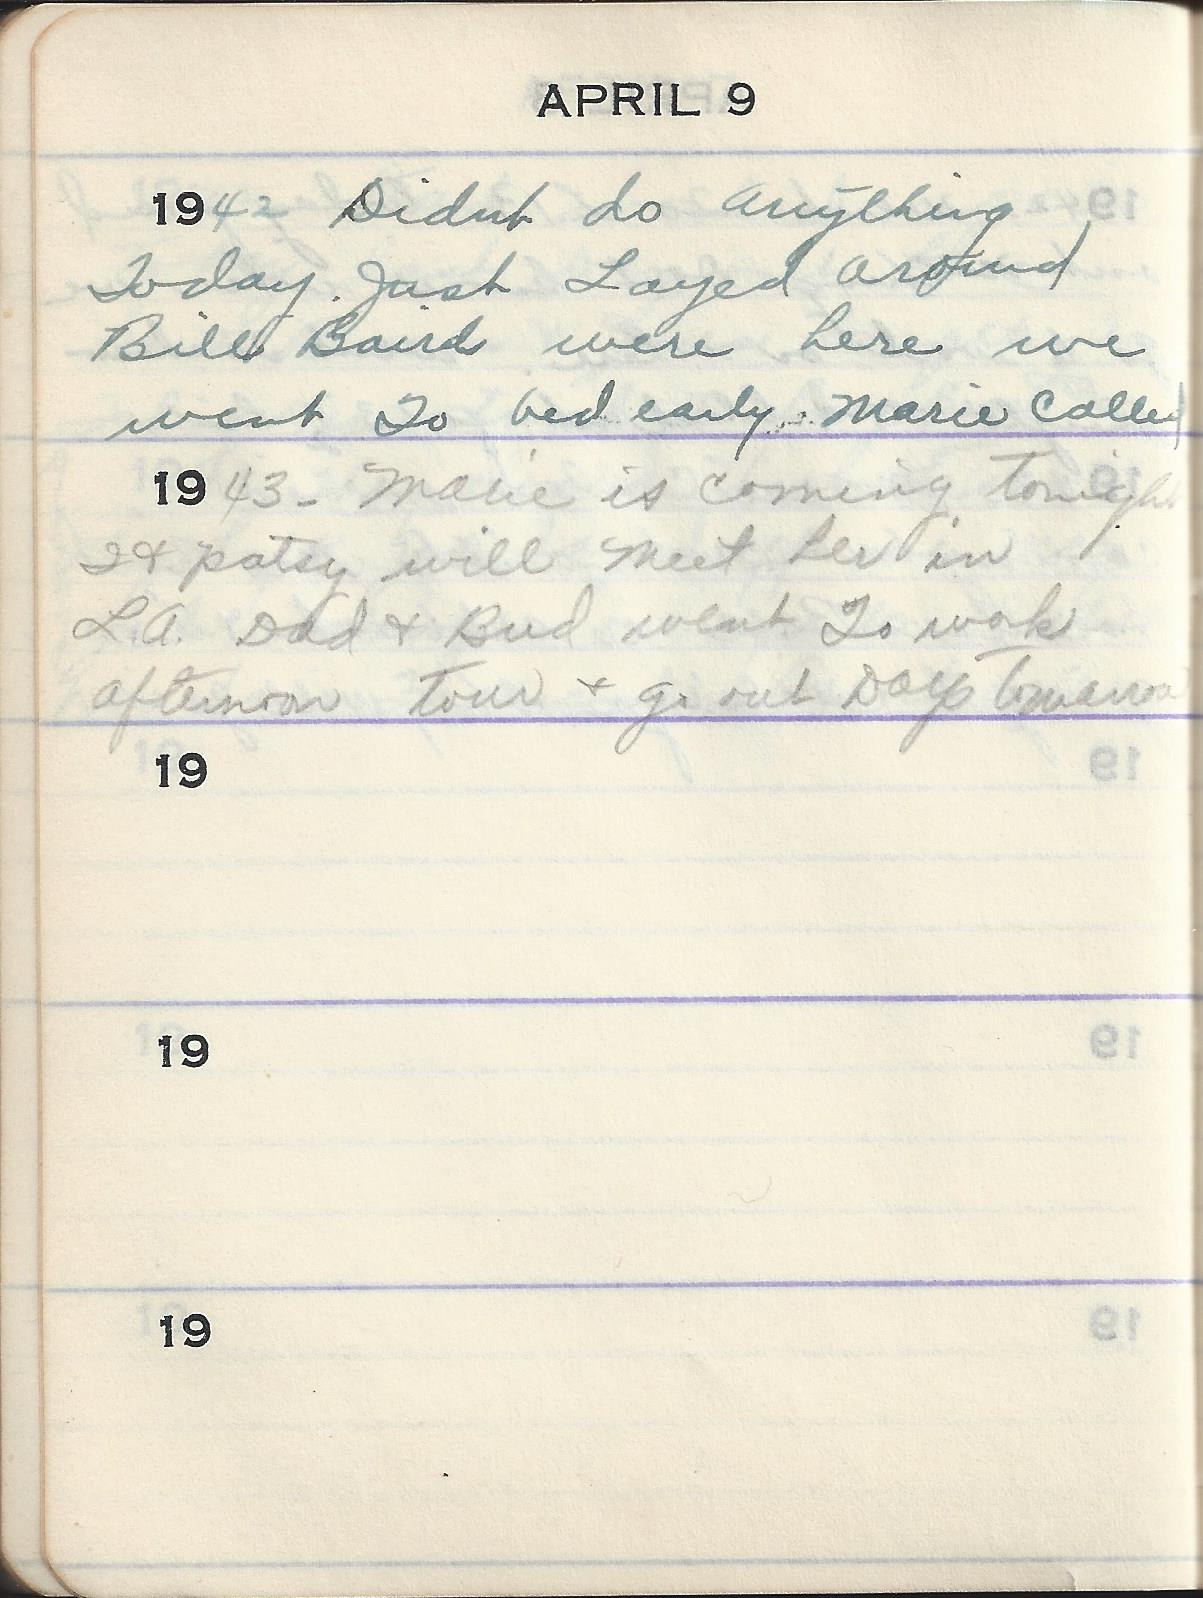 APRIL 9
1942 Didnt do anything
Today. Just Layed around
Bill Baird were here we
went To bed early. Marie Called
1943- Marie is coming tonight
I & patsy will meet her in
L.A. Dad & Bud went To work
afternoon tour & go out Days tomarrow
19
19
19